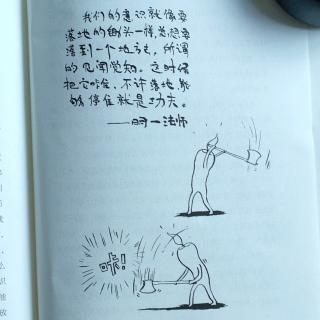 我们的意识就像要
落地的锄头一样,总想要
落到一个地方去,所谓
的见闻觉知。这时候
把它咔,不许落地,能
够停住就是功夫。
——明一法师
咔!
么
识
能
放